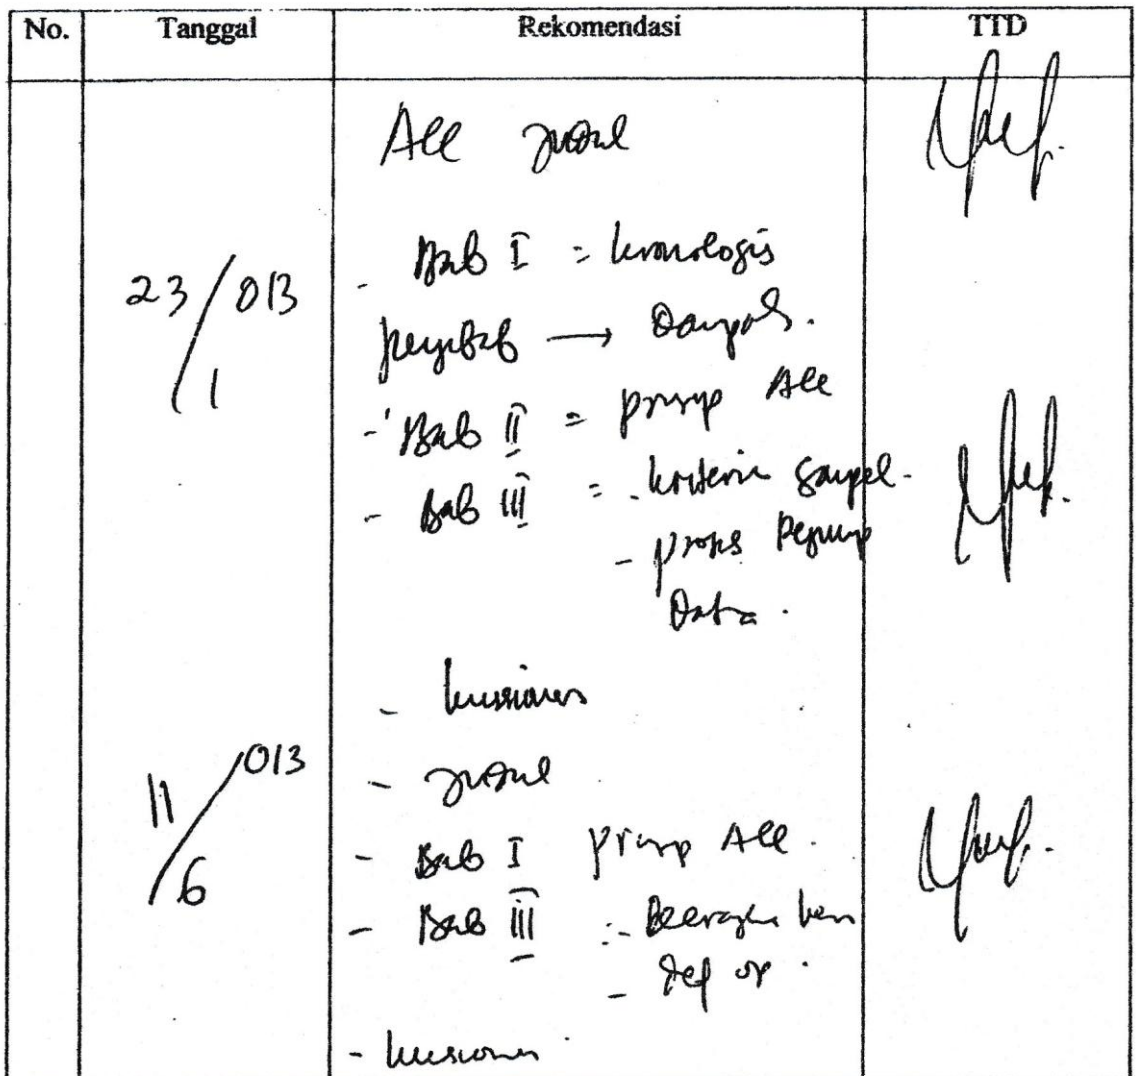 No. Tanggal Rekomendasi TTD
Acc Judul
- Bab I = kronologis
23/1 013
penyebab → Dampak.
- Bab II = prinsip Acc
- Bab III = - kriteria sampel.
- proses Data.
- kuesioner
11/6 013
- Judul
- Bab I prinsip Acc.
- Bab III :-
- Def op.
- kuesioner